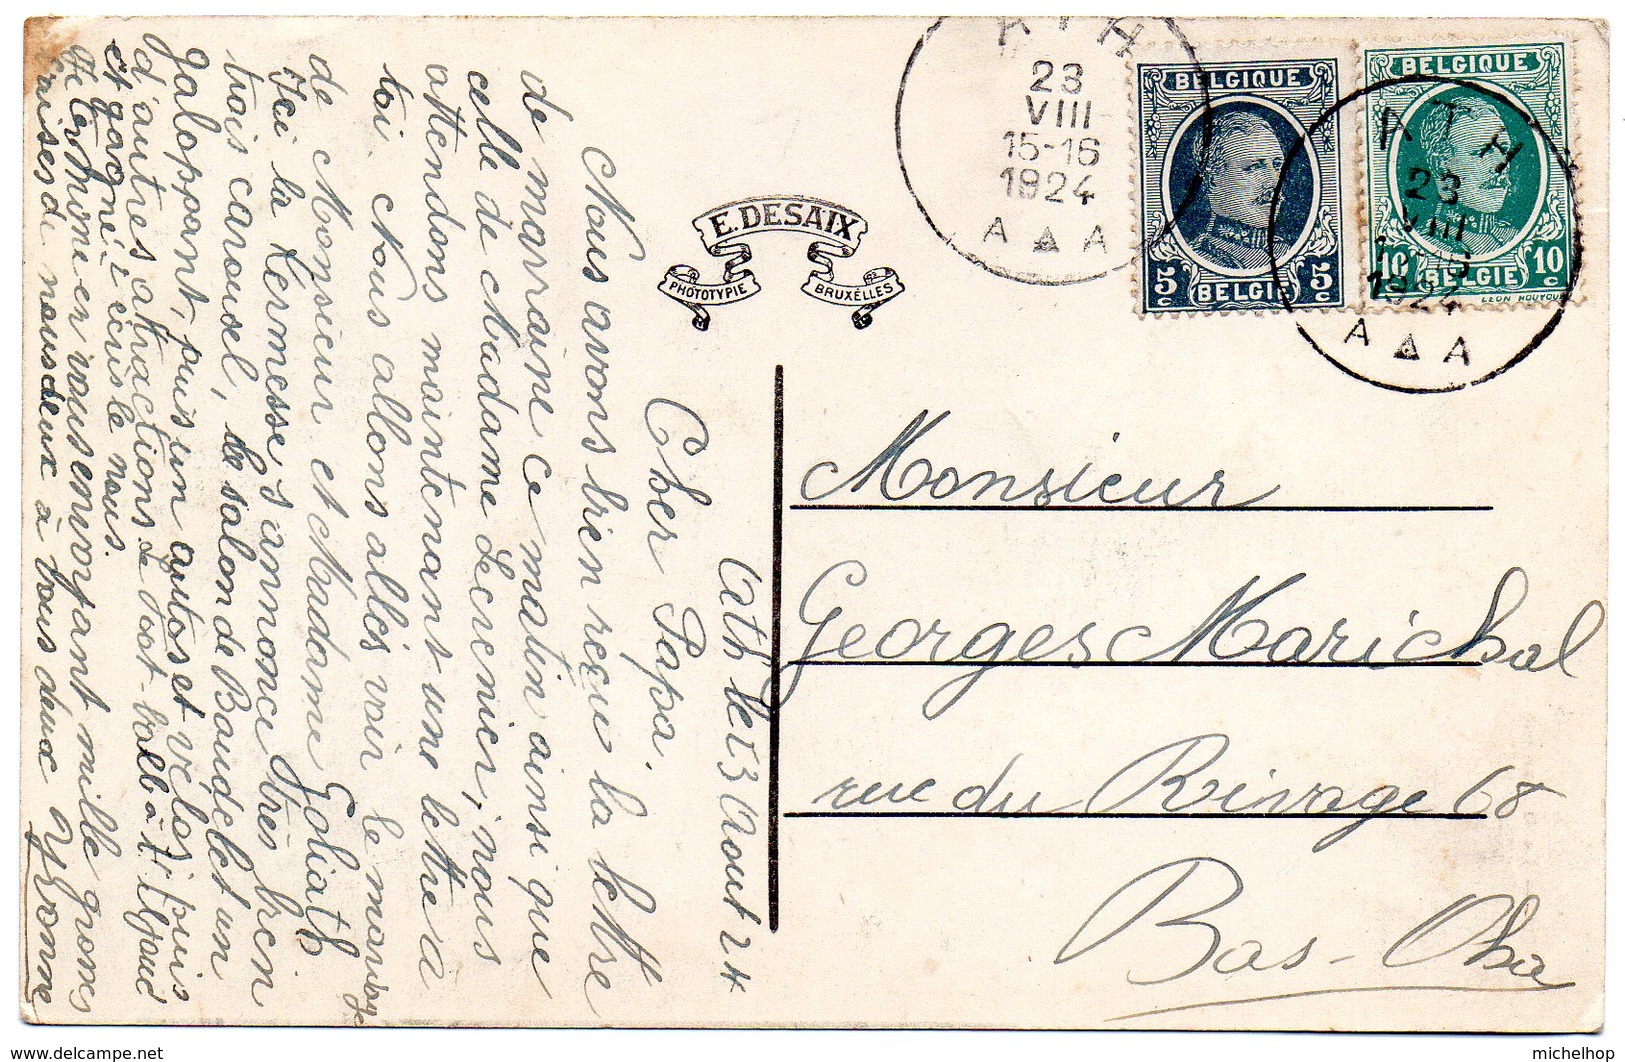 Ath le 23 Aout 24
Cher Papa.
Nous avons bien reçu la lettre
de marraine ce matin ainsi que
celle de Madame Lecrenier, nous
attendons maintenant une lettre à
toi. Nous allons allés voir le mariage
de Monsieur et Madame Goliath
Ici la Kermesse, s'annonce très bien
trois carousel, le salon de Baudelet un
galoppant, puis un autos et vélos, puis
d'autres attractions de foot-ball à
et gagné écris le nous.
Hermione en vous envoyant mille gromes
baises de nous deux à tous deux Yvonne
E. DESAIX
PHOTOTYPIE BRUXELLES
ATH
23
VIII
15-16
1924
A A
BELGIQUE
5c 5c
BELGIË
BELGIQUE
10c 10c
BELGIE
ATH
23
VIII
1924
A A
Monsieur
Georges Marichal
rue du Rivage 68
Bas-Oha
delcampe.net
michelhop